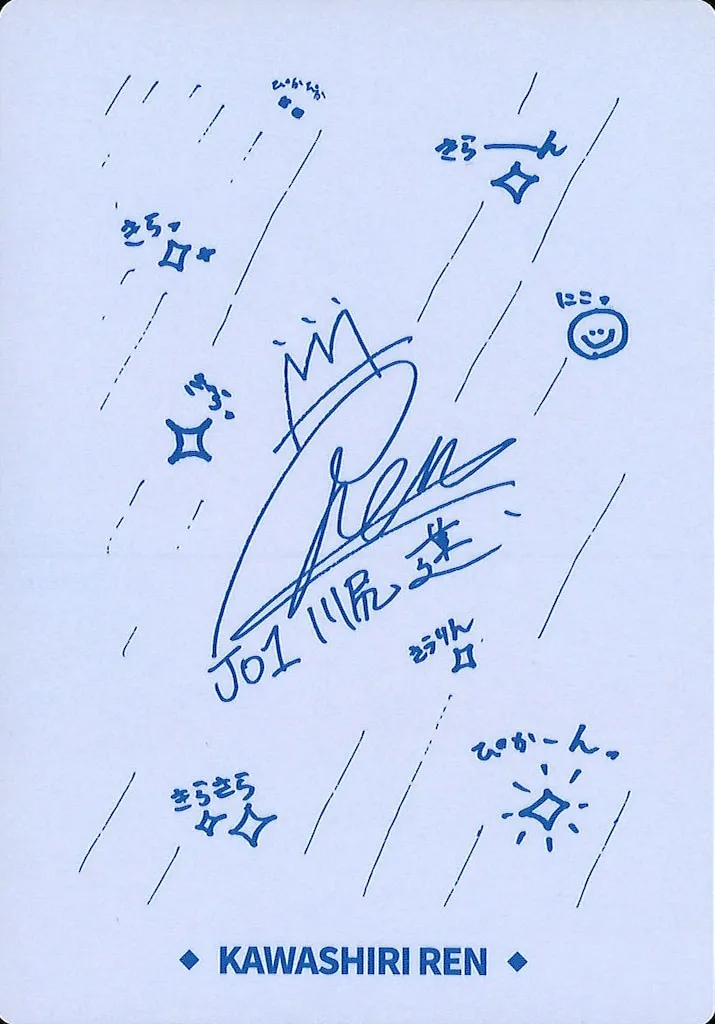 ぴかぴか
きらーん
きらっ
にこっ
Ren
JO1 川尻 蓮
きらりん
ぴかーん。
きらきら
◆ KAWASHIRI REN ◆